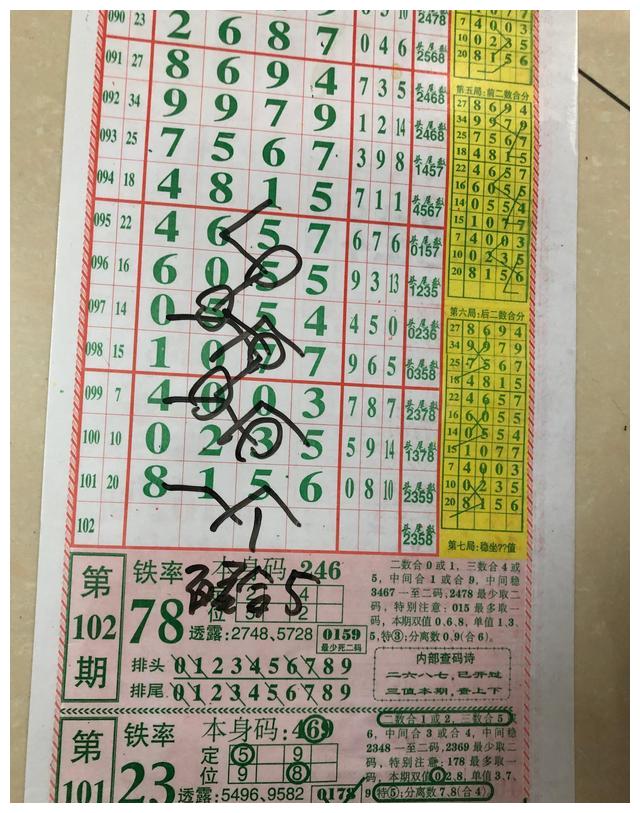 090 23 2 6 8 7 5 10 头尾数 2478
091 27 8 6 9 4 0 4 6 头尾数 2568
092 34 9 9 7 9 7 3 5 头尾数 2468
093 25 7 5 6 7 1 2 14 头尾数 2468
094 18 4 8 1 5 3 9 8 头尾数 1457
095 22 4 6 5 7 7 1 1 头尾数 4567
096 16 6 0 5 5 6 7 6 头尾数 0157
097 14 0 5 5 4 9 3 13 头尾数 1235
098 15 1 0 7 7 4 5 0 头尾数 0236
099 7 4 0 0 3 9 6 5 头尾数 0358
100 10 0 2 3 5 7 8 7 头尾数 2378
101 20 8 1 5 6 5 9 14 头尾数 1378
102 0 8 10 头尾数 2359
头尾数 2358
7 4 0 0 3
10 0 2 3 5
20 8 1 5 6
第五局:前二数合分
27 8 6 9 4
34 9 9 7 9
25 7 5 6 7
18 4 8 1 5
22 4 6 5 7
16 6 0 5 5
14 0 5 5 4
15 1 0 7 7
7 4 0 0 3
10 0 2 3 5
20 8 1 5 6
第六局:后二数合分
27 8 6 9 4
34 9 9 7 9
25 7 5 6 7
18 4 8 1 5
22 4 6 5 7
16 6 0 5 5
14 0 5 5 4
15 1 0 7 7
7 4 0 0 3
10 0 2 3 5
20 8 1 5 6
第七局:稳坐??值
第102期
铁率 78
本身码:246
合5
透露:2748、5728 0159
最少死二码
排头 0 1 2 3 4 5 6 7 8 9
排尾 0 1 2 3 4 5 6 7 8 9
二数合0或1,三数合4或
5,中间合1或合9,中间稳
3467一至二码,2478最少取二
码,特别注意:015最多取一
码,本期双值0、6、8,单值1、3、
5,特③;分离数0、9(合6)。
内部查码诗
二六八七,已开过
三值本期,查上下
第101
铁率 23
本身码:469
定位 ⑤ 9
9 ⑧
透露:5496、9582 0178
二数合1或2,三数合5或
6,中间合3或合4,中间稳
2348一至二码,2369最少取二
码,特别注意:178最多取一
码,本期双值0、2、8,单值3、7、
9,特⑤;分离数7、8(合4)